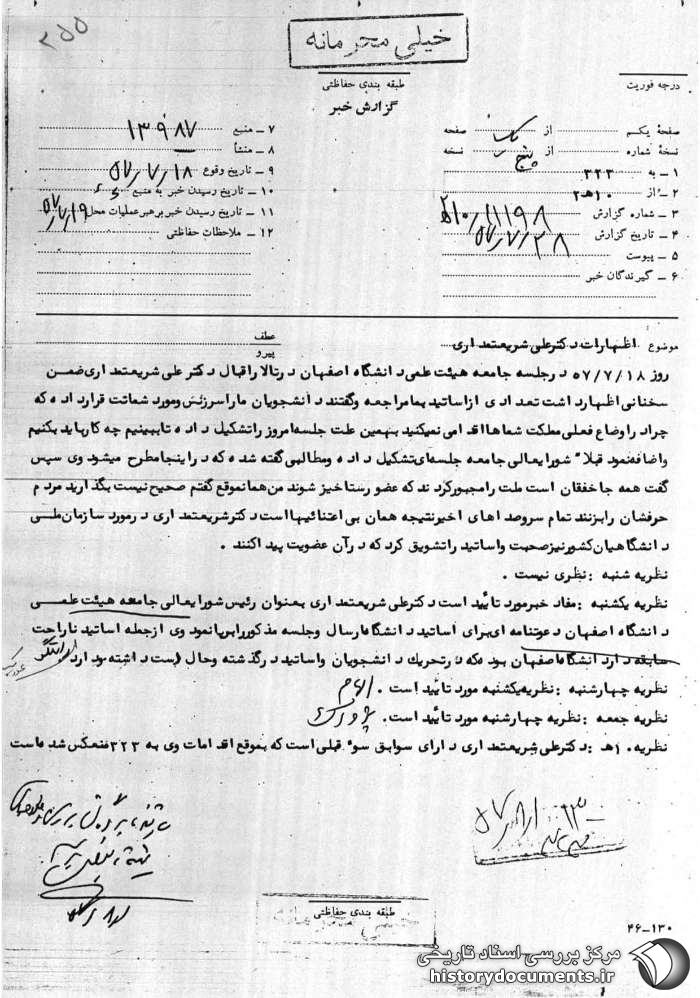 ۲۵۵
خیلی محرمانه
طبقه بندی حفاظتی
گزارش خبر
درجه فوریت
صفحه یکم از یک صفحه
نسخه شماره از پنج نسخه
۱ ـ به ۳۲۳
۲ ـ از ۱۰هـ۲
۳ ـ شماره گزارش ۲۱۰/۱۱۱۹۸
۴ ـ تاریخ گزارش ۵۷/۷/۲۸
۵ ـ پیوست
۶ ـ گیرندگان خبر
۷ ـ منبع ۱۳۹۸۷
۸ ـ منشأ
۹ ـ تاریخ وقوع ۵۷/۷/۱۸
۱۰ ـ تاریخ رسیدن خبر به منبع
۱۱ ـ تاریخ رسیدن خبر برهبر عملیات محل ۵۷/۷/۱۹
۱۲ ـ ملاحظات حفاظتی
موضوع اظهارات دکترعلی شریعتمداری
عطف
پیرو
روز ۵۷/۷/۱۸ در جلسه جامعه هیئت علمی دانشگاه اصفهان درتالار اقبال دکتر علی شریعتمداری ضمن
سخنانی اظهارداشت تعدادی ازاساتید بمامراجعه وگفتند دانشجویان ماراسرزنش ومورد شماتت قرارداده که
چرادراوضاع فعلی مملکت شماهااقدامی نمیکنید بهمین علت جلسه امروز راتشکیل داده تاببینیم چه کارباید بکنیم
واضافه نمود قبلا" شورایعالی جامعه جلسه ای تشکیل داده ومطالبی گفته شده که دراینجامطرح میشود وی سپس
گفت همه جاخفقان است ملت رامجبورکردند که عضو رستاخیز شوند من همانموقع گفتم صحیح نیست بگذارید مردم
حرفشان رابزنند تمام سروصداهای اخیرنتیجه همان بی اعتنائیهااست دکترشریعتمداری درمورد سازمان ملی
دانشگاهیان کشورنیزصحبت واساتید راتشویق کرد که درآن عضویت پیداکنند .
نظریه شنبه : نظری نیست .
نظریه یکشنبه : مفاد خبرمورد تائید است دکترعلی شریعتمداری بعنوان رئیس شورایعالی جامعه هیئت علمی
دانشگاه اصفهان دعوتنامه ای برای اساتید دانشگاه ارسال وجلسه مذکوررابرپانمود وی ازجمله اساتید ناراحت
سابقه دار دانشگاه اصفهان بوده که درتحریک دانشجویان واساتید درگذشته وحال دست داشته ودارد
نظریه چهارشنبه : نظریه یکشنبه مورد تائید است .
نظریه جمعه : نظریه چهارشنبه مورد تائید است .
نظریه . ۱هـ : دکترعلی شریعتمداری دارای سوابق سو" قبلی است که بموقع اقدامات وی به ۳۲۳ منعکس شده است
طبقه بندی حفاظتی
۴۶-۱۳۰
مرکز بررسی اسناد تاریخی
historydocuments.ir